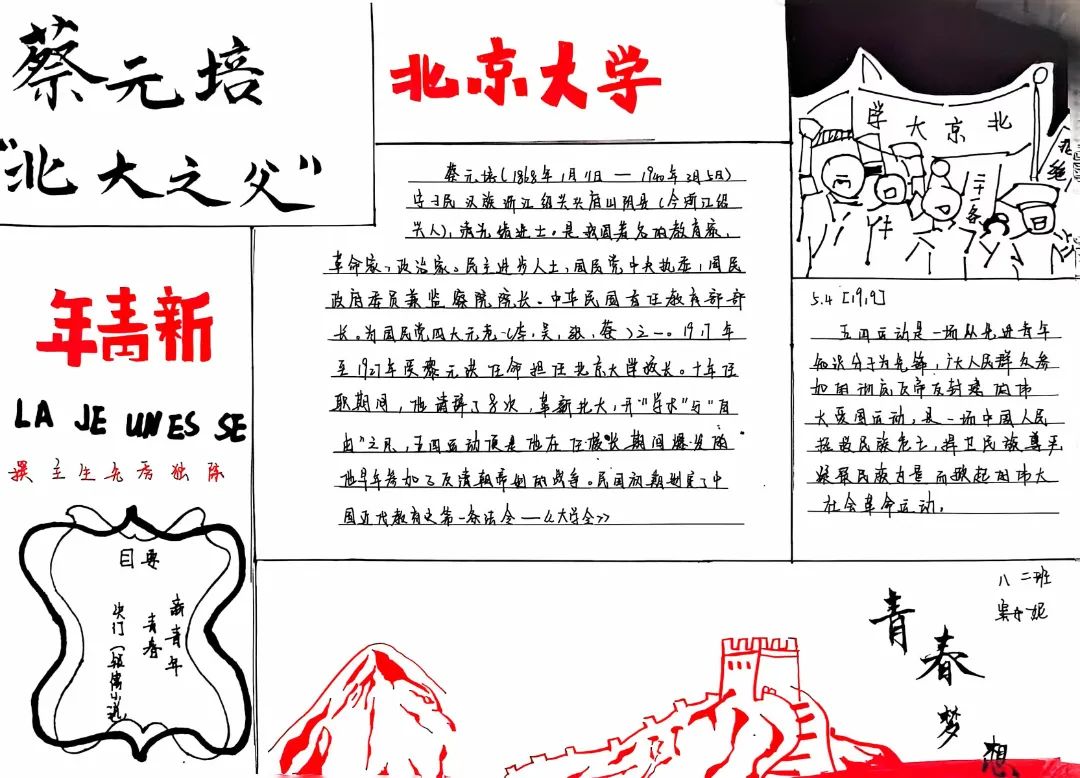 蔡元培
"北大之父"
北京大学
年青新
LA JEUNESSE
撰主生先秀独陈
目要
新青年
青春
蔡元培(1868年1月11日—1940年3月5日)
字孑民 汉族 浙江绍兴府山阴县(今浙江绍
兴人),清光绪进士。是我国著名的教育家、
革命家、政治家。民主进步人士,国民党中央执委,国民
政府委员兼监察院院长。中华民国首任教育部部
长。为国民党四大元老(李,吴,张,蔡)之一。1917年
至1927年受黎元洪任命担任北京大学校长。十年任
职期间,他请辞了8次,革新北大,开"学术"与"自
由"之风,五四运动便是他在任校长期间爆发的
他早年参加了反清朝帝制的战争。民国初期制定了中
国近代教育史第一条法令—《大学令》
北京大学
二十一条
拒绝
5.4 [1919]
五四运动是一场以先进青年
知识分子为先锋,广大人民群众参
加的彻底反帝反封建的伟
大爱国运动,是一场中国人民
拯救民族危亡,捍卫民族尊严
凝聚民族力量而掀起的伟大
社会革命运动。
八二班
青春梦想